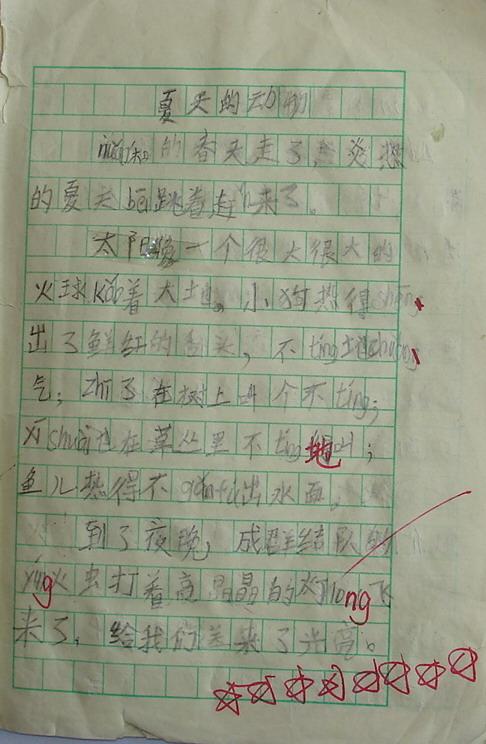 夏天的动物
的春天走了,炎热
的夏天bèng跳着走来了。
太阳像一个很大很大的
火球kǎo着大地。小狗热得shēn
出了鲜红的舌头,不tíng地chuǎn
气;zhī了在树上叫个不tíng;
Xī shuài也在草丛里不tíng地叫;
鱼儿热得不gǎn 出水面。
到了夜晚,成群结队的
yíng火虫打着亮晶晶的灯lóng飞
来了,给我们送来了光亮。